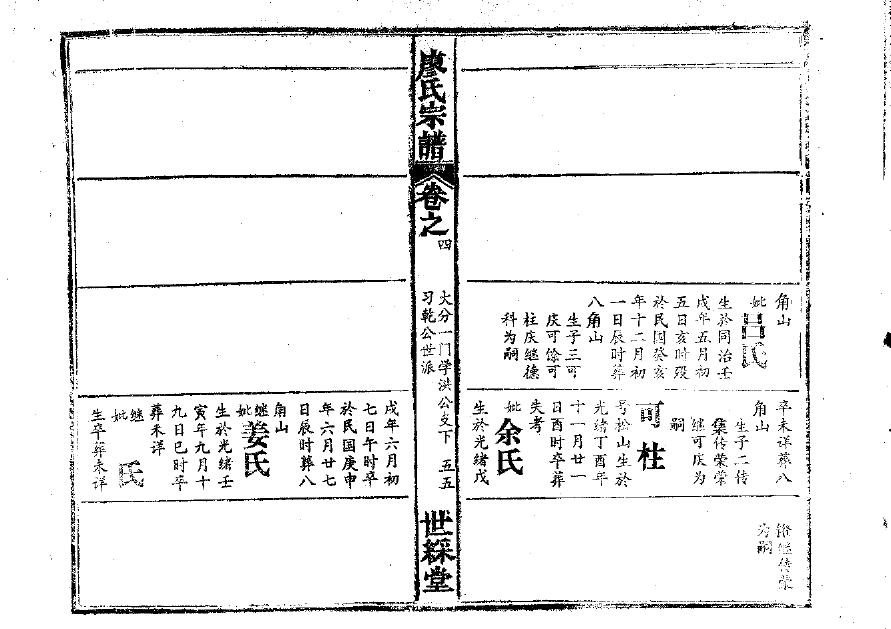 角山
妣吕氏
生於同治壬
戌年五月初
五日亥时殁
於民国癸亥
年十二月初
一日辰时葬
八角山
生子三可
庆可馀可
柱庆继德
科为嗣
辛未详葬八
角山
生子二传
集传荣荣
继可庆为
嗣
可柱
号松山生於
光绪丁酉年
十一月廿一
日酉时卒葬
失考
妣余氏
生於光绪戊
继传荣
为嗣
廖氏宗谱
卷之四
大分一门学洪公支下
习乾公世派
五五
世綵堂
戌年六月初
七日午时卒
於民国庚申
年六月廿七
日辰时葬八
角山
继妣姜氏
生於光绪壬
寅年九月十
九日巳时卒
葬未详
继妣 氏
生卒葬未详